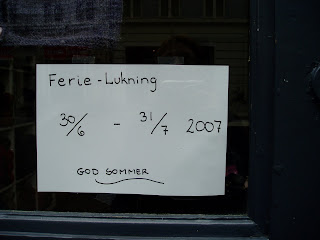 Ferie-Lukning
30/6 - 31/7 2007
GOD SOMMER